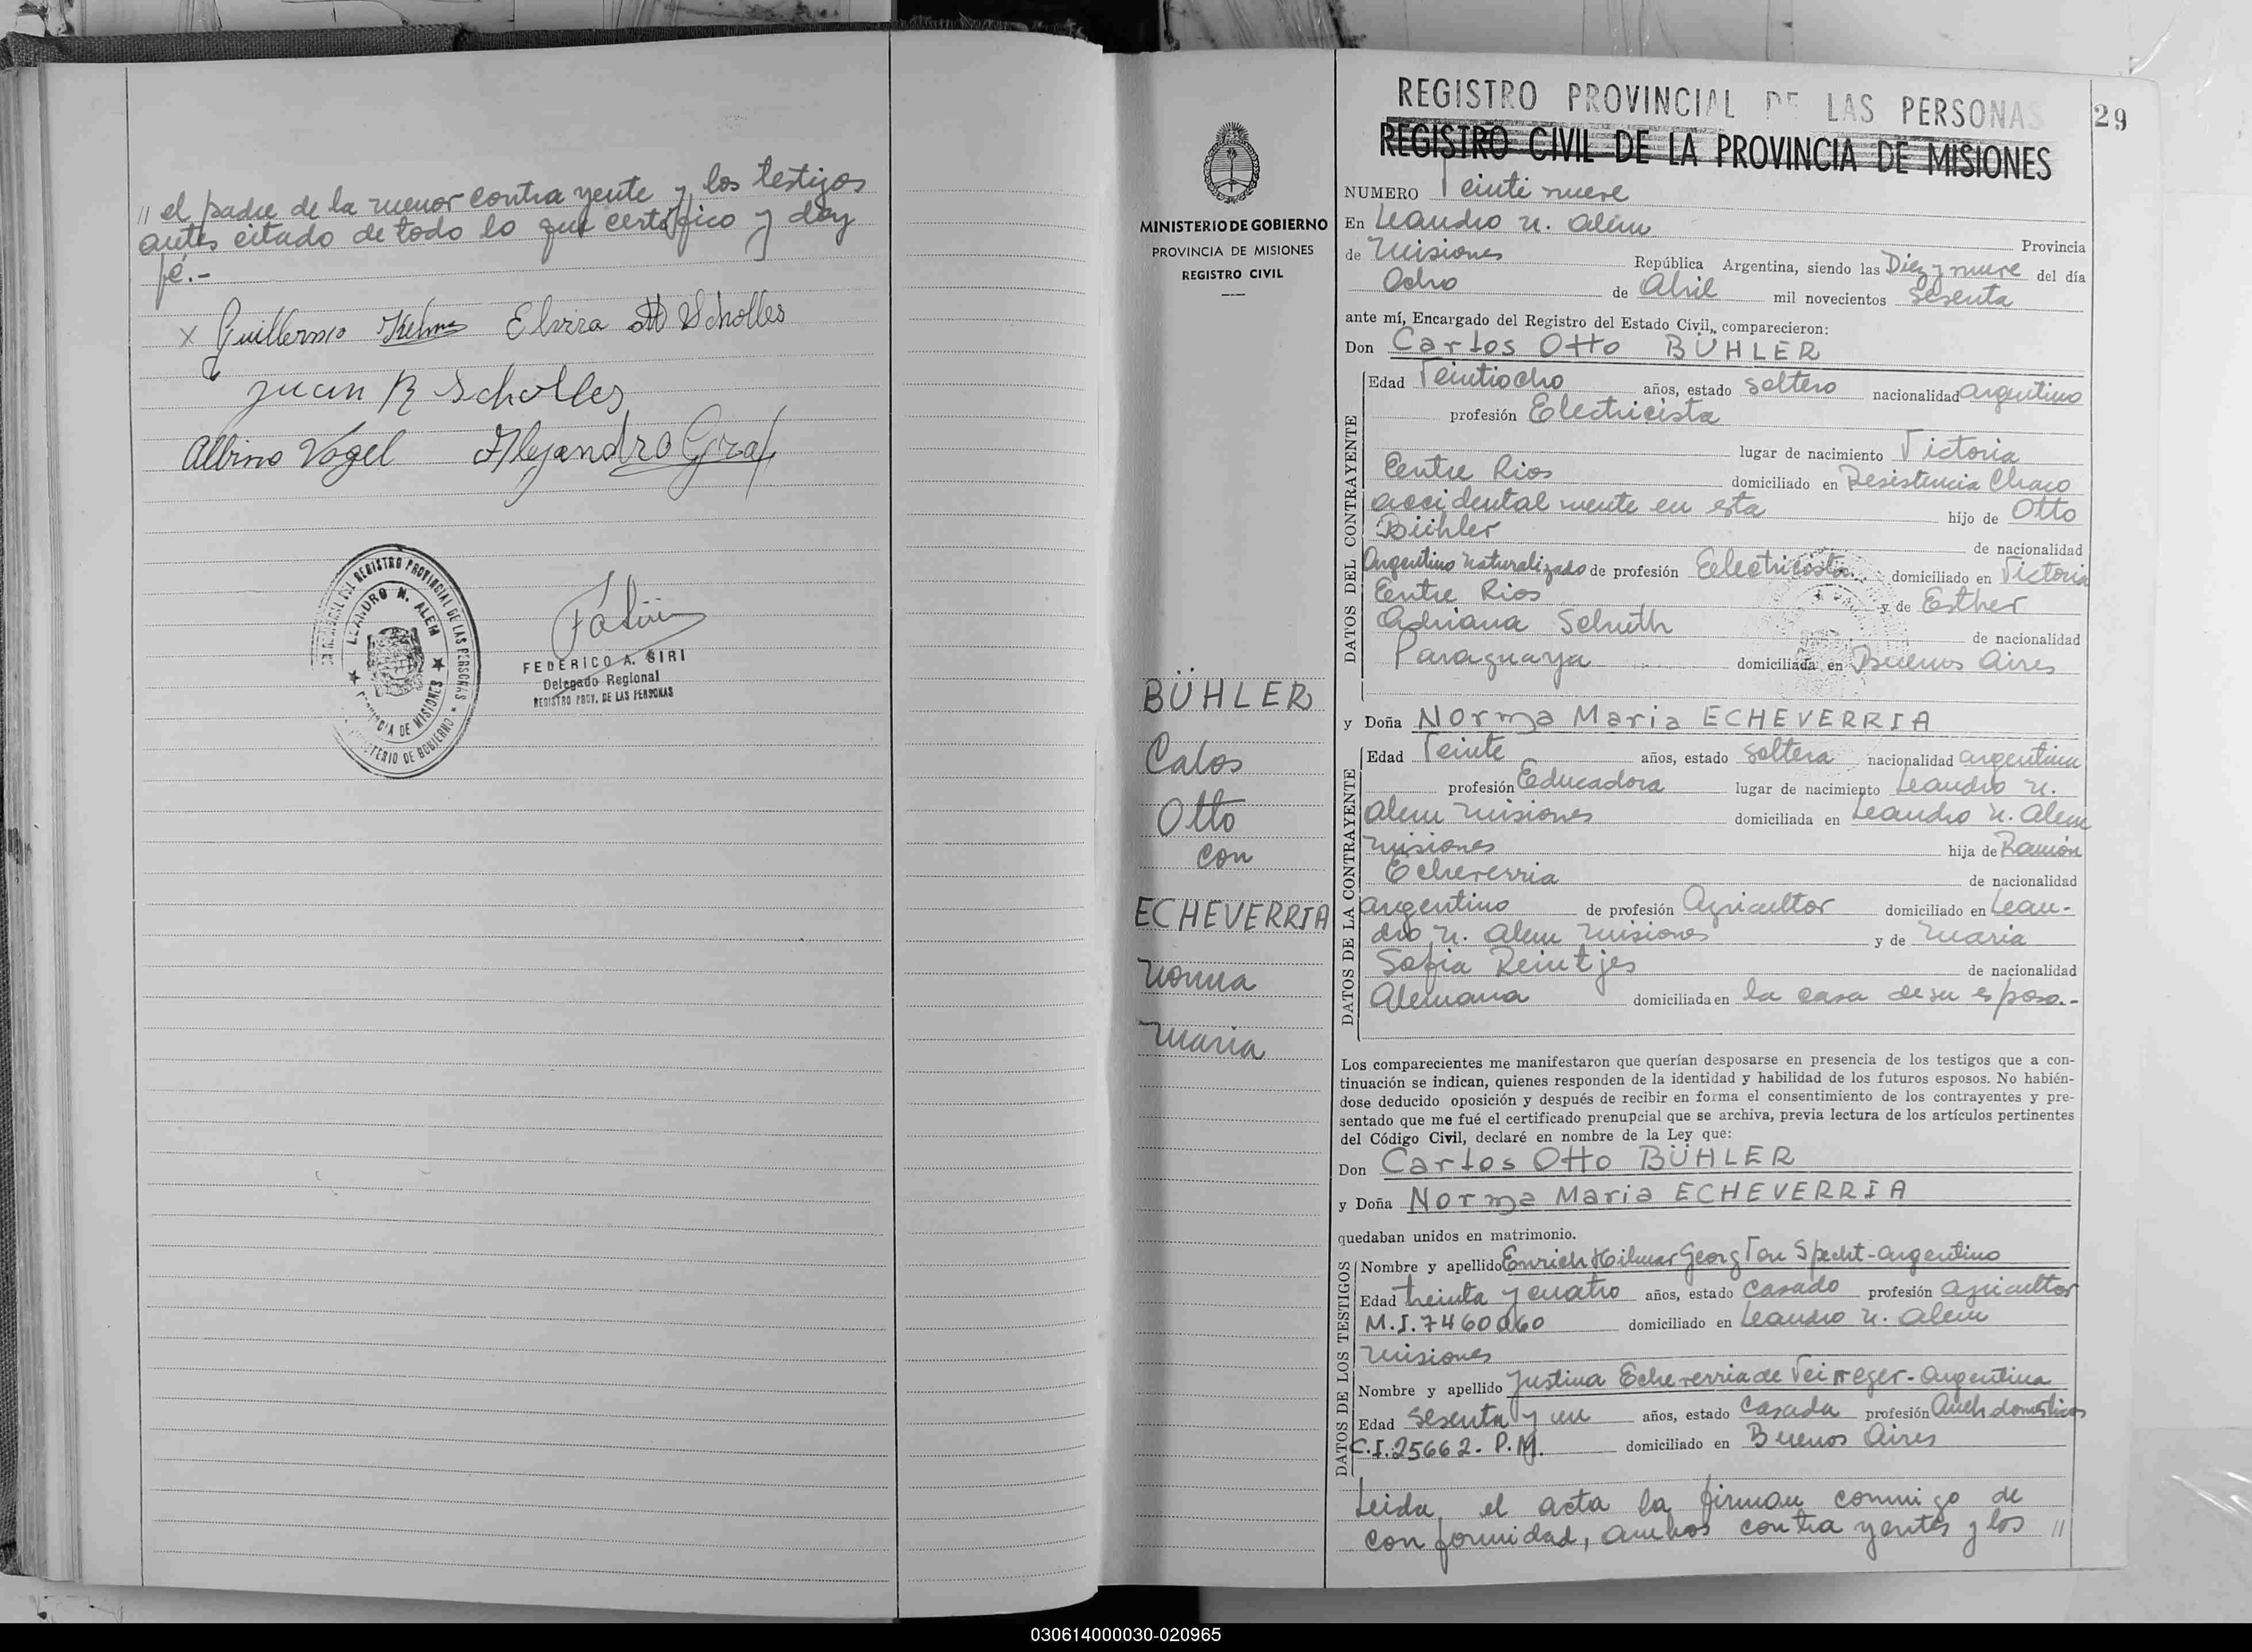 // el padre de la menor contra yente y los testigos
antes citado de todo lo que certifico y doy
fé.-
X Guillermo Elvira Scholles
Juan R Scholles
Albino Vogel Alejandro Graf
REGISTRO PROVINCIAL DE LAS PERSONAS
LEANDRO N. ALEM
PROVINCIA DE MISIONES
MINISTERIO DE GOBIERNO
FEDERICO A. SIRI
Delegado Regional
REGISTRO PROV. DE LAS PERSONAS
MINISTERIO DE GOBIERNO
PROVINCIA DE MISIONES
REGISTRO CIVIL
BÜHLER
Calos
Otto
con
ECHEVERRIA
Norma
Maria
REGISTRO PROVINCIAL DE LAS PERSONAS
29
REGISTRO CIVIL DE LA PROVINCIA DE MISIONES
NUMERO Veinti nueve
En Leandro N. Alem Provincia
de Misiones República Argentina, siendo las Diez y nueve del día
Ocho de Abril mil novecientos sesenta
ante mí, Encargado del Registro del Estado Civil, comparecieron:
Don Carlos Otto BÜHLER
DATOS DEL CONTRAYENTE
Edad Veintiocho años, estado soltero nacionalidad argentino
profesión Electricista
lugar de nacimiento Victoria
Entre Rios domiciliado en Resistencia Chaco
accidental mente en esta hijo de Otto
Bühler de nacionalidad
Argentino naturalizado de profesión Electricista domiciliado en Victoria
Entre Rios y de Esther
Adriana Schuth de nacionalidad
Paraguaya domiciliada en Buenos Aires
y Doña Norma Maria ECHEVERRIA
DATOS DE LA CONTRAYENTE
Edad Veinte años, estado soltera nacionalidad argentina
profesión Educadora lugar de nacimiento Leandro N.
Alem Misiones domiciliada en Leandro N. Alem
Misiones hija de Ramón
Echeverria de nacionalidad
argentino de profesión Agricultor domiciliado en Lean-
dro N. Alem Misiones y de Maria
Sofia Reintjes de nacionalidad
Alemana domiciliada en la casa de su esposo.-
Los comparecientes me manifestaron que querían desposarse en presencia de los testigos que a con-
tinuación se indican, quienes responden de la identidad y habilidad de los futuros esposos. No habién-
dose deducido oposición y después de recibir en forma el consentimiento de los contrayentes y pre-
sentado que me fué el certificado prenupcial que se archiva, previa lectura de los artículos pertinentes
del Código Civil, declaré en nombre de la Ley que:
Don Carlos Otto BÜHLER
y Doña Norma Maria ECHEVERRIA
quedaban unidos en matrimonio.
DATOS DE LOS TESTIGOS
Nombre y apellido Enrich Hilmar Georg Von Specht-argentino
Edad treinta y cuatro años, estado casado profesión agricultor
M.I. 7460060 domiciliado en Leandro N. Alem
Misiones
Nombre y apellido Justina Echeverria de - Argentina
Edad sesenta y un años, estado Casada profesión domésticos
C.I. 25662. P.M. domiciliado en Buenos Aires
Leida el acta la firman conmigo de
con formidad, ambos contra yentes y los //
030614000030-020965